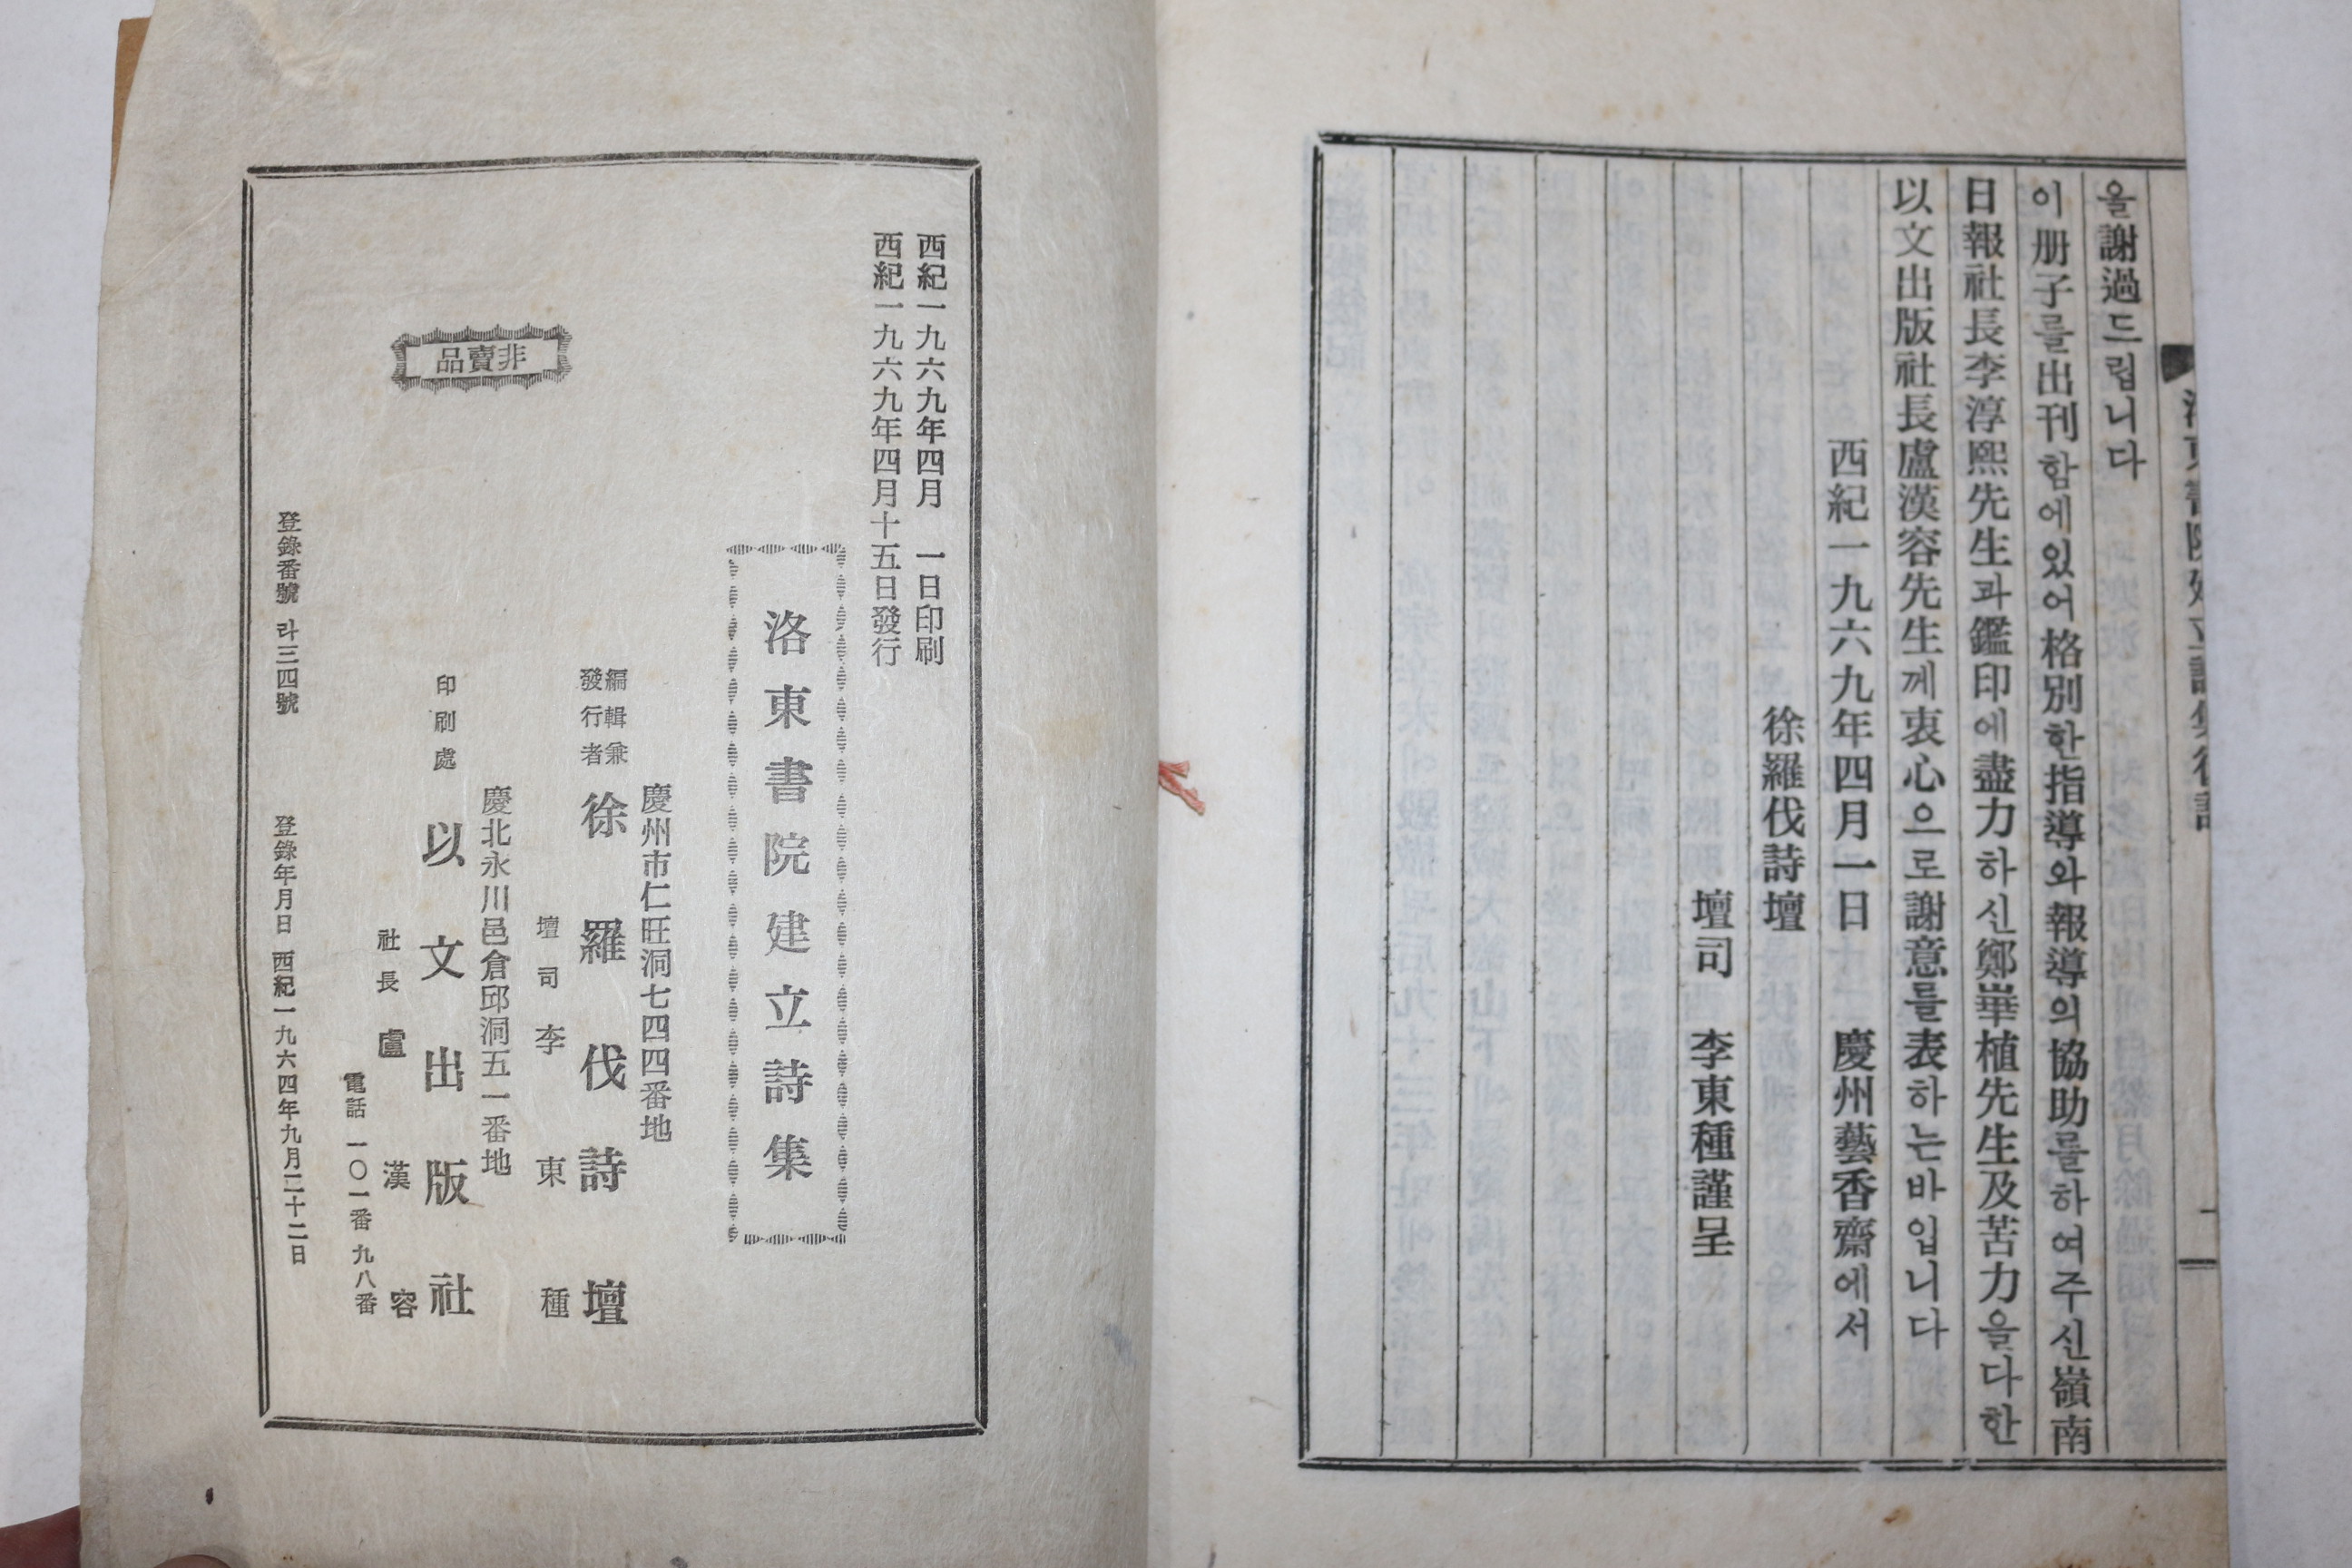 洛東書院建立詩集後記
一
을謝過드립니다
이册子를出刊함에있어格別한指導와報導의協助를하여주신嶺南
日報社長李淳熙先生과鑑印에盡力하신鄭崋植先生及苦力을다한
以文出版社長盧漢容先生께衷心으로謝意를表하는바입니다
西紀一九六九年四月一日 慶州藝香齋에서
徐羅伐詩壇
壇司 李東種謹呈
西紀一九六九年四月 一日印刷
西紀一九六九年四月十五日發行
洛東書院建立詩集
慶州市仁旺洞七四四番地
編輯兼
發行者
徐羅伐詩壇
壇司 李東種
慶北永川邑倉邱洞五一番地
印刷處 以文出版社
社長 盧漢容
電話 一〇一番 九八番
非賣品
登錄番號 라三四號
登錄年月日 西紀一九六四年九月二十二日